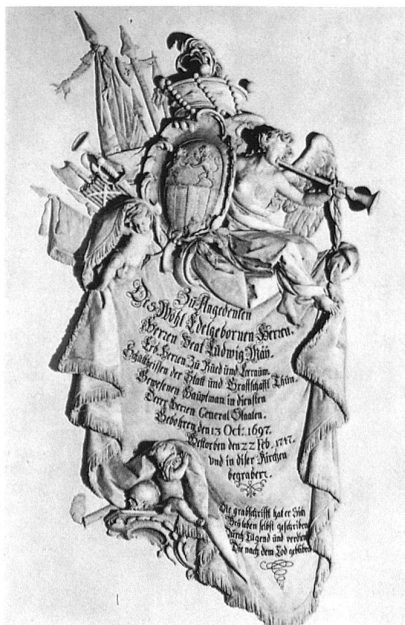 Zu Angedenken
Des Wohl Edelgebornen Herren.
Herren Beat Ludwig Mäÿ.
Herren Zu Rüed und
Schultheissen der Statt und Graffschafft Thun.
Gewesenen Hauptman in diensten
Herren General Staaten.
Gebohren den 13 Oct: 1697.
Gestorben den 22 Feb. 1747.
und in diser Kirchen
begraben.
Die grabschrifft hat er Sich
Beÿ leben selbst geschriben
Durch Tugend und
Die nach dem Tod gebliben